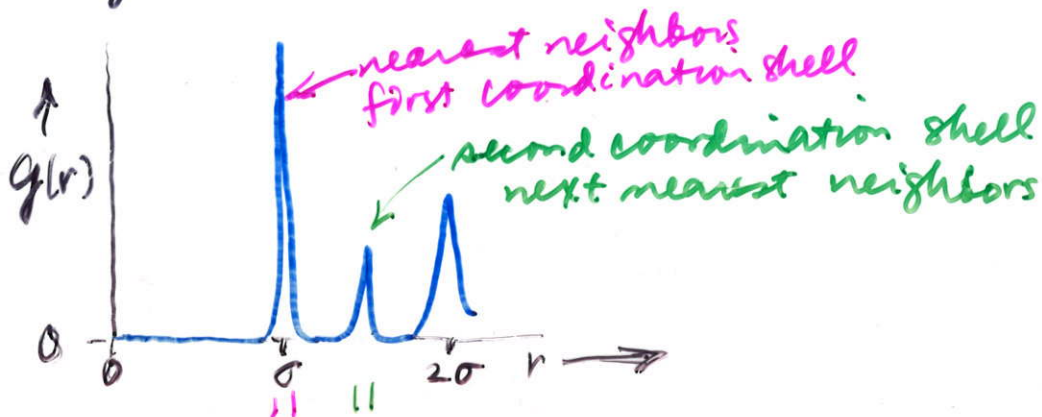 nearest neighbors
first coordination shell
second coordination shell
next nearest neighbors
g(r)
0
0 σ 2σ r